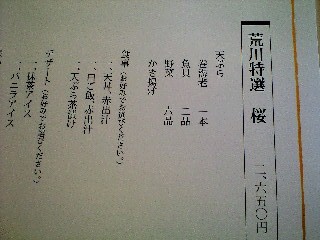 荒川特選 桜 二、六五〇円
天ぷら
巻海老 二本
魚貝 二品
野菜 六品
かき揚げ
食事(お好みでお選びください。)
：天丼、赤出汁
：白ご飯、赤出汁
：天ぷら茶漬け
デザート(お好みでお選びください。)
：抹茶アイス
：バニラアイス